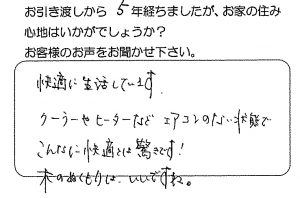 お引き渡しから 5年経ちましたが、お家の住み
心地はいかがでしょうか？
お客様のお声をお聞かせ下さい。
快適に生活しています。
クーラーやヒーターなど エアコンのない状態で
こんなに快適とは驚きです！
木のぬくもりは、いいですね。